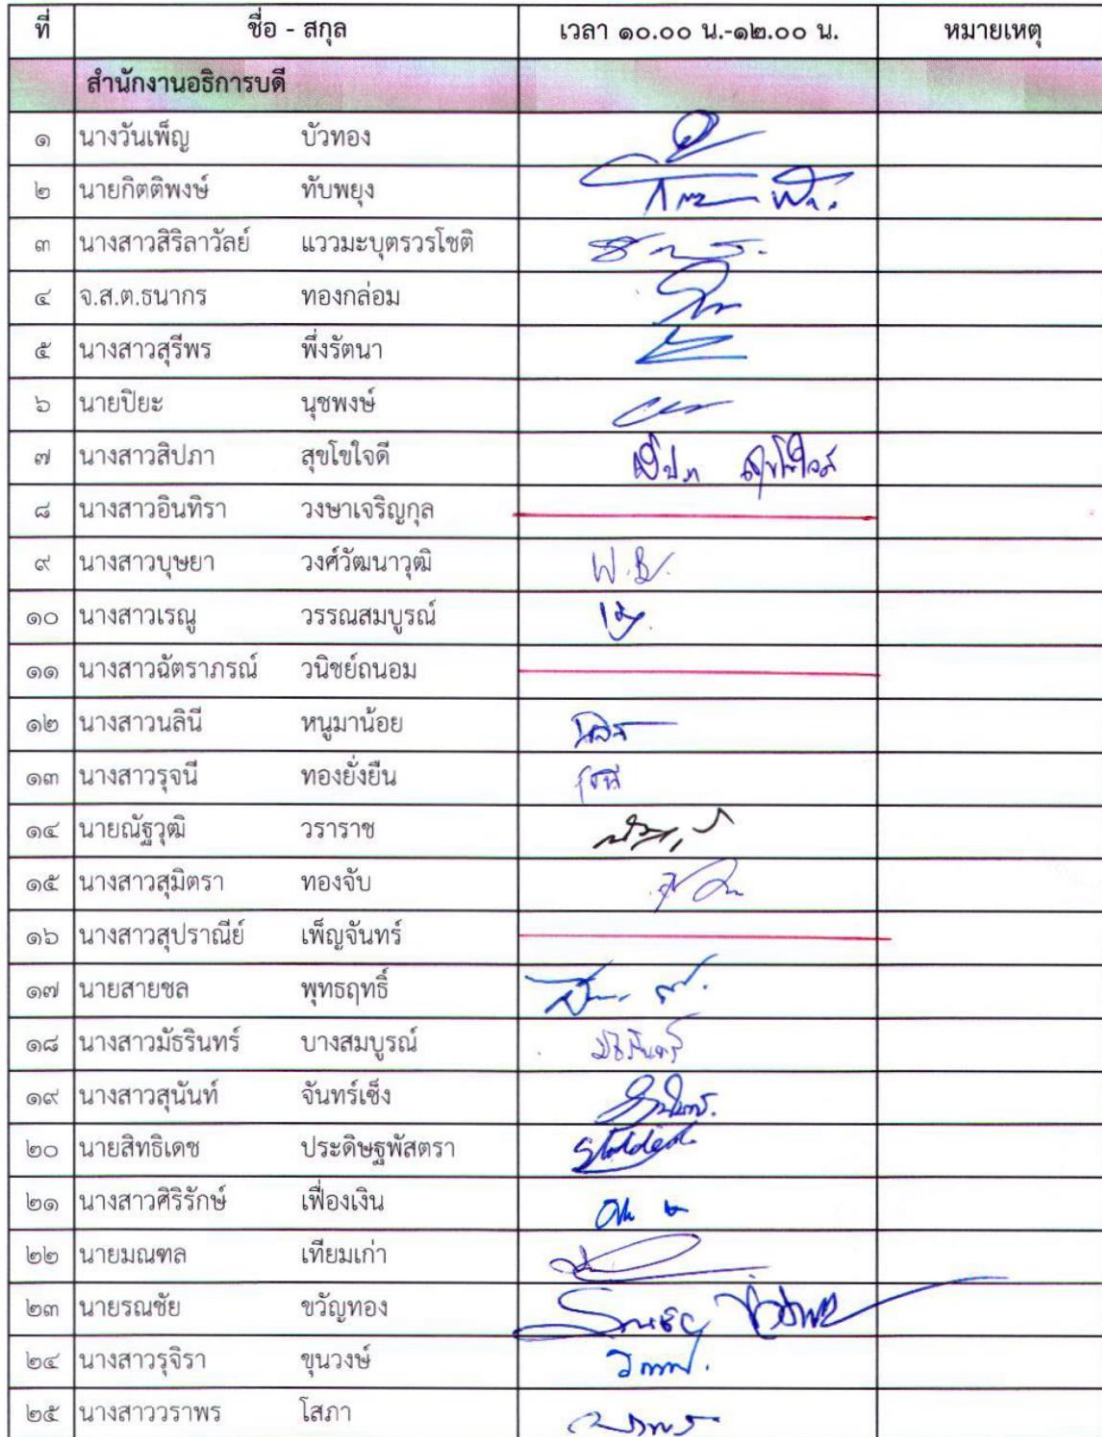 ที่ ชื่อ - สกุล เวลา ๑๐.๐๐ น.-๑๒.๐๐ น. หมายเหตุ
สำนักงานอธิการบดี
๑ นางวันเพ็ญ บัวทอง
๒ นายกิตติพงษ์ ทับพยุง
๓ นางสาวสิริลาวัลย์ แววมะบุตรวรโชติ
๔ จ.ส.ต.ธนากร ทองกล่อม
๕ นางสาวสุรีพร พึ่งรัตนา
๖ นายปิยะ นุชพงษ์
๗ นางสาวสิปภา สุขโขใจดี สิปภา สุขโขใจดี
๘ นางสาวอินทิรา วงษาเจริญกุล
๙ นางสาวบุษยา วงศ์วัฒนาวุฒิ W.B.
๑๐ นางสาวเรณู วรรณสมบูรณ์
๑๑ นางสาวฉัตราภรณ์ วนิชย์ถนอม
๑๒ นางสาวนลินี หนูมาน้อย
๑๓ นางสาวรุจนี ทองยั่งยืน รุจนี
๑๔ นายณัฐวุฒิ วราราช
๑๕ นางสาวสุมิตรา ทองจับ
๑๖ นางสาวสุปราณีย์ เพ็ญจันทร์
๑๗ นายสายชล พุทธฤทธิ์
๑๘ นางสาวมัธรินทร์ บางสมบูรณ์ มัธรินทร์
๑๙ นางสาวสุนันท์ จันทร์เซ็ง
๒๐ นายสิทธิเดช ประดิษฐพัสตรา
๒๑ นางสาวศิริรักษ์ เฟื่องเงิน
๒๒ นายมณฑล เทียมเก่า
๒๓ นายรณชัย ขวัญทอง รณชัย ขวัญทอง
๒๔ นางสาวรุจิรา ขุนวงษ์
๒๕ นางสาววราพร โสภา วราพร